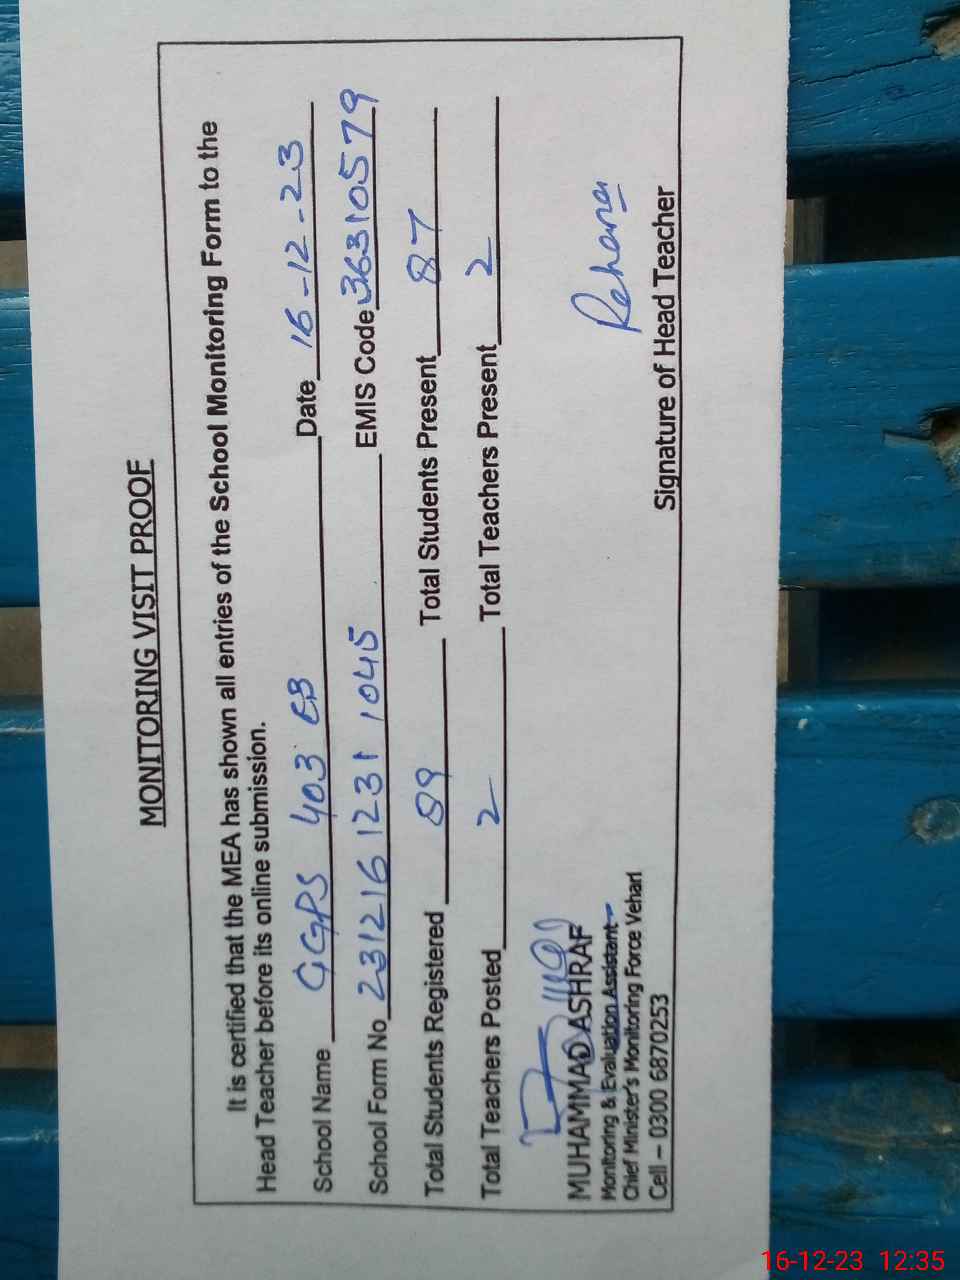 MONITORING VISIT PROOF
It is certified that the MEA has shown all entries of the School Monitoring Form to the
Head Teacher before its online submission.
School Name GGPS 403 EB Date 16-12-23
School Form No 231216 1231 1045 EMIS Code 36310579
Total Students Registered 89 Total Students Present 87
Total Teachers Posted 2 Total Teachers Present 2
Rehana
MUHAMMAD ASHRAF
Monitoring & Evaluation Assistant
Chief Minister's Monitoring Force Vehari
Cell – 0300 6870253
Signature of Head Teacher
16-12-23 12:35